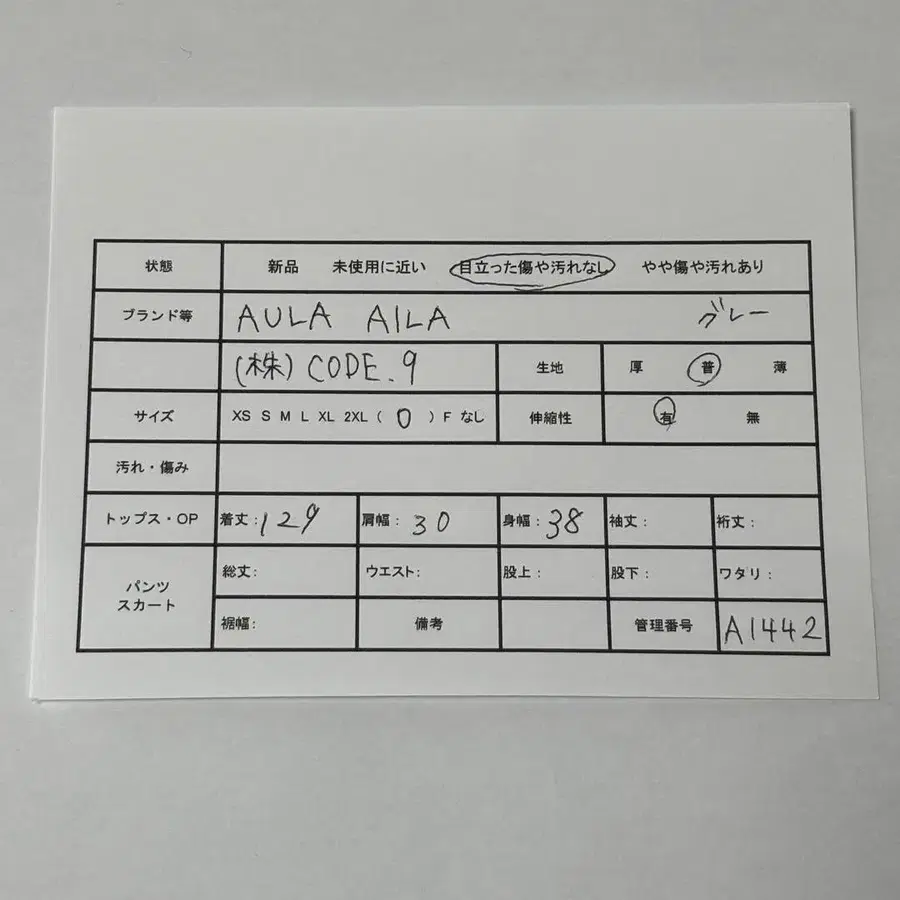 状態 新品 未使用に近い 目立った傷や汚れなし やや傷や汚れあり
ブランド等 AULA AILA グレー
(株) CODE.9 生地 厚 普 薄
サイズ XS S M L XL 2XL ( 0 ) F なし 伸縮性 有 無
汚れ・傷み
トップス・OP 着丈:129 肩幅:30 身幅:38 袖丈: 裄丈:
パンツ スカート 総丈: ウエスト: 股上: 股下: ワタリ:
裾幅: 備考 管理番号 A1442